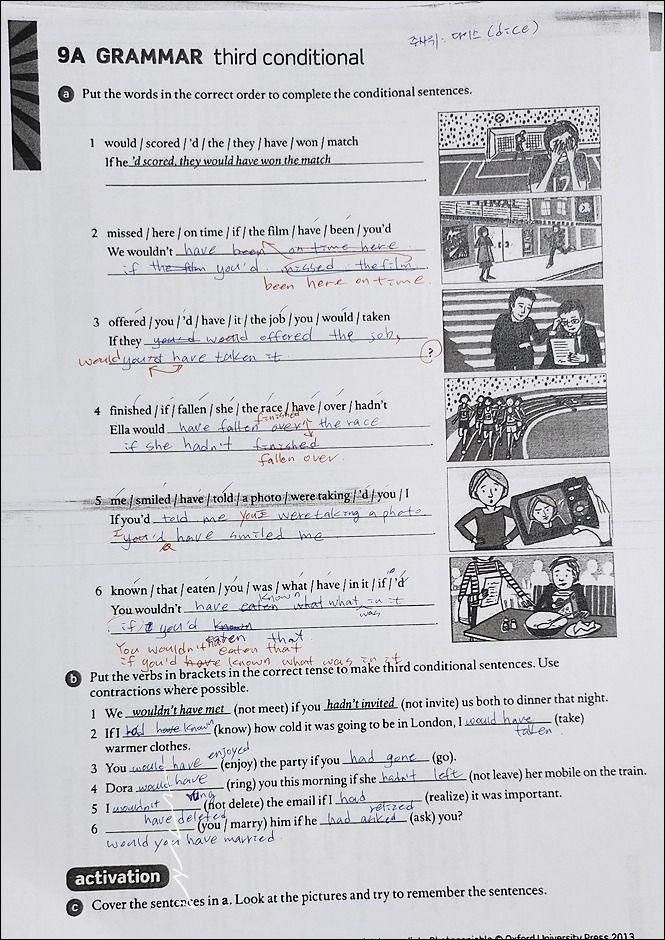 주사위: 다이스 (dice)
9A GRAMMAR third conditional
a Put the words in the correct order to complete the conditional sentences.
1 would / scored / 'd / the / they / have / won / match
If he 'd scored, they would have won the match.
2 missed / here / on time / if / the film / have / been / you'd
We wouldn't have been on time here
if the film you'd missed the film.
been here on time.
3 offered / you / 'd / have / it / the job / you / would / taken
If they you'd would offered the job,
would you'd have taken it ?
4 finished / if / fallen / she / the race / have / over / hadn't
finished
Ella would have fallen over the race
if she hadn't finished.
fallen over.
5 me / smiled / have / told / a photo / were taking / 'd / you / I
If you'd told me you I were taking a photo
I you'd have smiled me.
6 known / that / eaten / you / was / what / have / in it / if / 'd
known
You wouldn't have eaten what what in it
was
if I you'd known
eaten that
You wouldn't have eaten that
if you'd have known what was in it
b Put the verbs in brackets in the correct tense to make third conditional sentences. Use
contractions where possible.
1 We wouldn't have met (not meet) if you hadn't invited (not invite) us both to dinner that night.
2 If I had have known (know) how cold it was going to be in London, I would have (take)
taken
warmer clothes.
enjoyed
3 You would have (enjoy) the party if you had gone (go).
4 Dora would have (ring) you this morning if she hadn't left (not leave) her mobile on the train.
rung
5 I wouldn't (not delete) the email if I had (realize) it was important.
have deleted relized
6 (you / marry) him if he had asked (ask) you?
would you have married
activation
c Cover the sentences in a. Look at the pictures and try to remember the sentences.
Photocopiable © Oxford University Press 2013